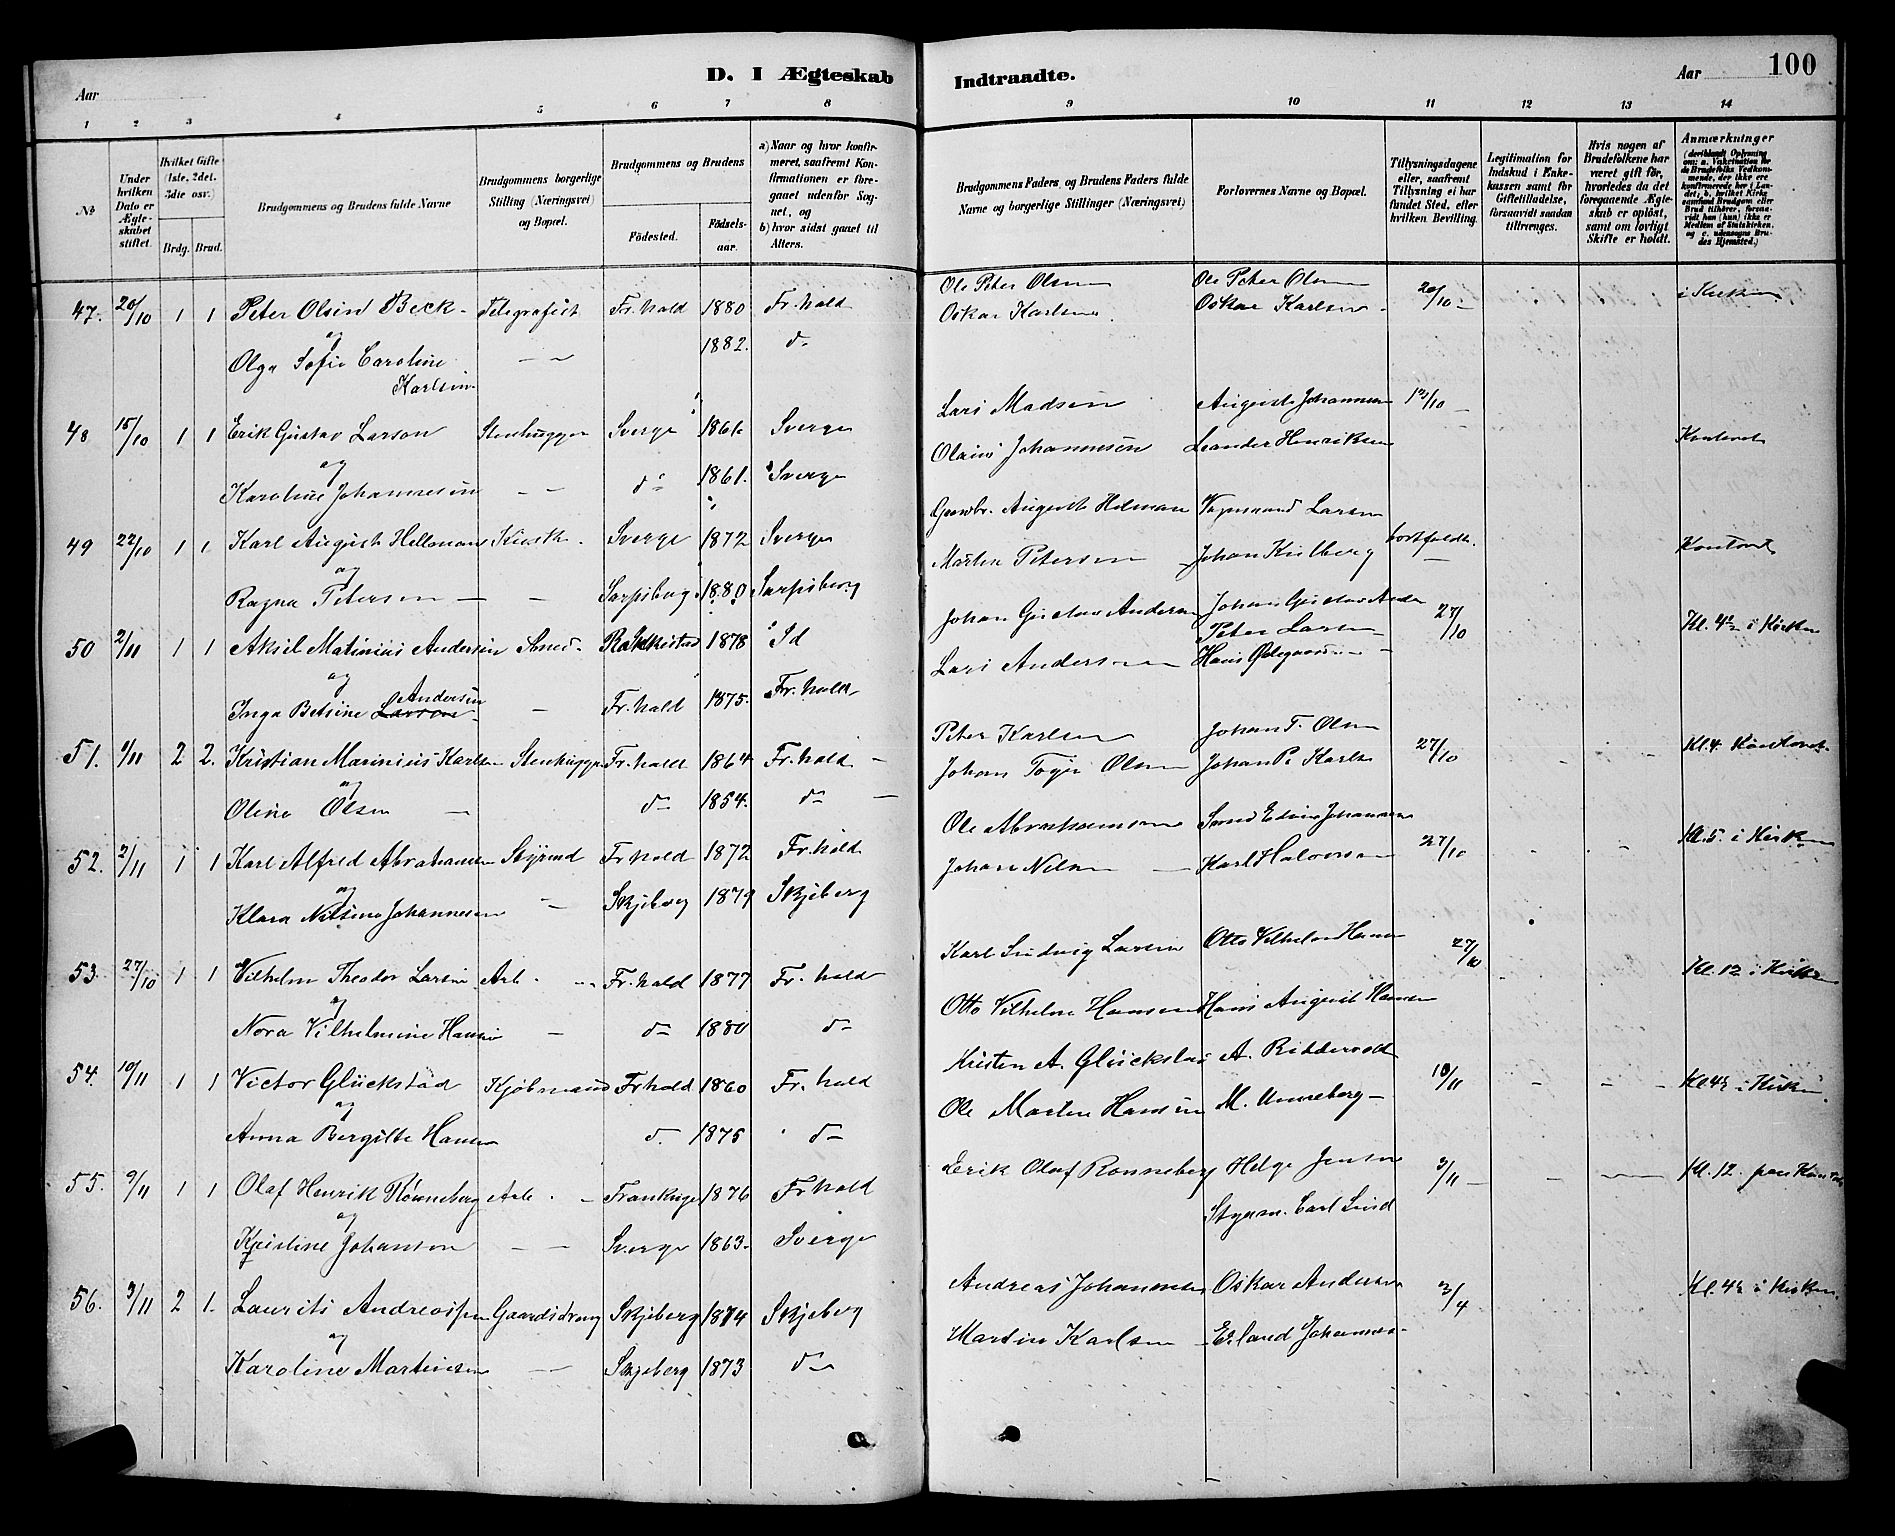 D. I Ægteskab Indtraadte.
Aar
Aar 100
1 2 3 4 5 6 7 8 9 10 11 12 13 14
No
Under hvilken Dato er Ægteskabet stiftet.
Hvilket Gifte (1ste, 2det, 3die osv.)
Brdg. Brud.
Brudgommens og Brudens fulde Navne
Brudgommens borgerlige Stilling (Næringsvei) og Bopæl.
Brudgommens og Brudens
Fødested.
Fødselsaar.
a) Naar og hvor konfirmeret, saafremt Konfirmationen er foregaaet udenfor Sognet, og
b) hvor sidst gaaet til Alters.
Brudgommens Faders, og Brudens Faders fulde Navne og borgerlige Stillinger (Næringsvei)
Forlovernes Navne og Bopæl.
Tillysningsdagene eller, saafremt Tillysning ei har fundet Sted, efter hvilken Bevilling.
Legitimation for Indskud i Enkekassen samt for Giftetilladelse, forsaavidt saadan tiltrænges.
Hvis nogen af Brudefolkene har været gift før, hvorledes da det foregaaende Ægteskab er opløst, samt om lovligt Skifte er holdt.
Anmærkninger (deriblandt Oplysning om: a. Vakcination for de Brudefolks Vedkommende, der ikke ere konfirmerede her i Landet; b. hvilket Kirkesamfund Brudgom eller Brud tilhører, forsaavidt han (hun) ikke er Medlem af Statskirken, og c. udensogns Brudes Hjemsted.)
47. 20/10 1 1 Peter Olsen Beck - Telegrafist Fr.hald 1880 Fr.hald Ole Peter Olsen Ole Peter Olsen 20/10 - i Kirken
og
Olga Sofie Caroline Karlsen - - 1882. do Oskar Karlsen Oskar Karlsen -
48 15/10 1 1 Erik Gustav Larson Stenhugger Sverge 1861 Sverge Lars Madsen August Johannesen 13/10 - Kontoret
og
Karoline Johannesen - - do 1861. Sverge Olaus Johannesen Leander Henriksen
49 22/10 1 1 Karl August Hellman Kusk - Sverge 1872 Sverge Grovbr. August Helman Vognmand Larsen bortfaldt. Kontoret
og
Ragna Petersen - - Sarpsborg 1880 Sarpsborg Martin Petersen Johan Kulberg -
50 2/11 1 1 Aksel Matinius Andersen Smed - Rakkestad 1878 Id Johan Gustav Andersen Johan Gustav Ander Peter Larsen 27/10 Kl. 4½ i Kirken
og
Inga Betsine Larsen Andersen - Fr.hald 1875. Fr.hald Lars Andersen Hans Ødegaard -
51. 1/11 2 2. Kristian Marinius Karlsen Stenhugger Fr.hald 1864 Fr.hald - Peter Karlsen Johan T. Olsen 27/10 - - Kl. 4. Kontoret.
og
Oline Olsen - do 1854. do - Johan Toger Olsen Johan P. Karlsen
52. 2/11 1 1 Karl Alfred Abrahamsen Styrmd Fr.hald 1872 Fr.hald Ole Abrahamsen Svend Edvin Johannesen 27/10 - - Kl. 5. i Kirken
og
Klara Nilsine Johannesen - Skjeberg 1879 Skjeberg Johan Nilsen - Karl Halvorsen
53. 27/10 1 1 Vilhelm Theodor Larsen Arb. - Fr.hald 1877 Fr.hald Karl Ludvig Larsen Otto Vilhelm Hansen 27/10 Kl. 12 i Kirken
og
Nora Vilhelmine Hansen - do 1880 do Otto Vilhelm Hansen Hans August Hansen
54. 10/11 1 1 Victor Glückstad Kjøbmand Fr.hald 1860 Fr.hald Kristen A. Glückstad A. Riddervold 10/11 - - - Kl. 4½ i Kirken.
og
Anna Bergitte Hansen d. 1875 do Ole Martin Hansen M. Unneberg -
55. 9/11 1 1 Olaf Henrik Rønneberg Arb. - 1876 Fr.hald Erik Olaf Ronneberg Helge Jensen 3/11 - - Kl. 12. paa Kontoret
og
Kristine Johansen - - Sverge 1863. Sverge Styrm. Carl Lind
56. 3/11 2 1. Laurits Andreassen Gaardsdreng Skjeberg 1874 Skjeberg Andreas Johannesen Oskar Andersen 3/4 Kl. 4½ i Kirken.
og
Karoline Martinsen - Skjeberg 1873 do Martin Karlsen - Erland Johannes -